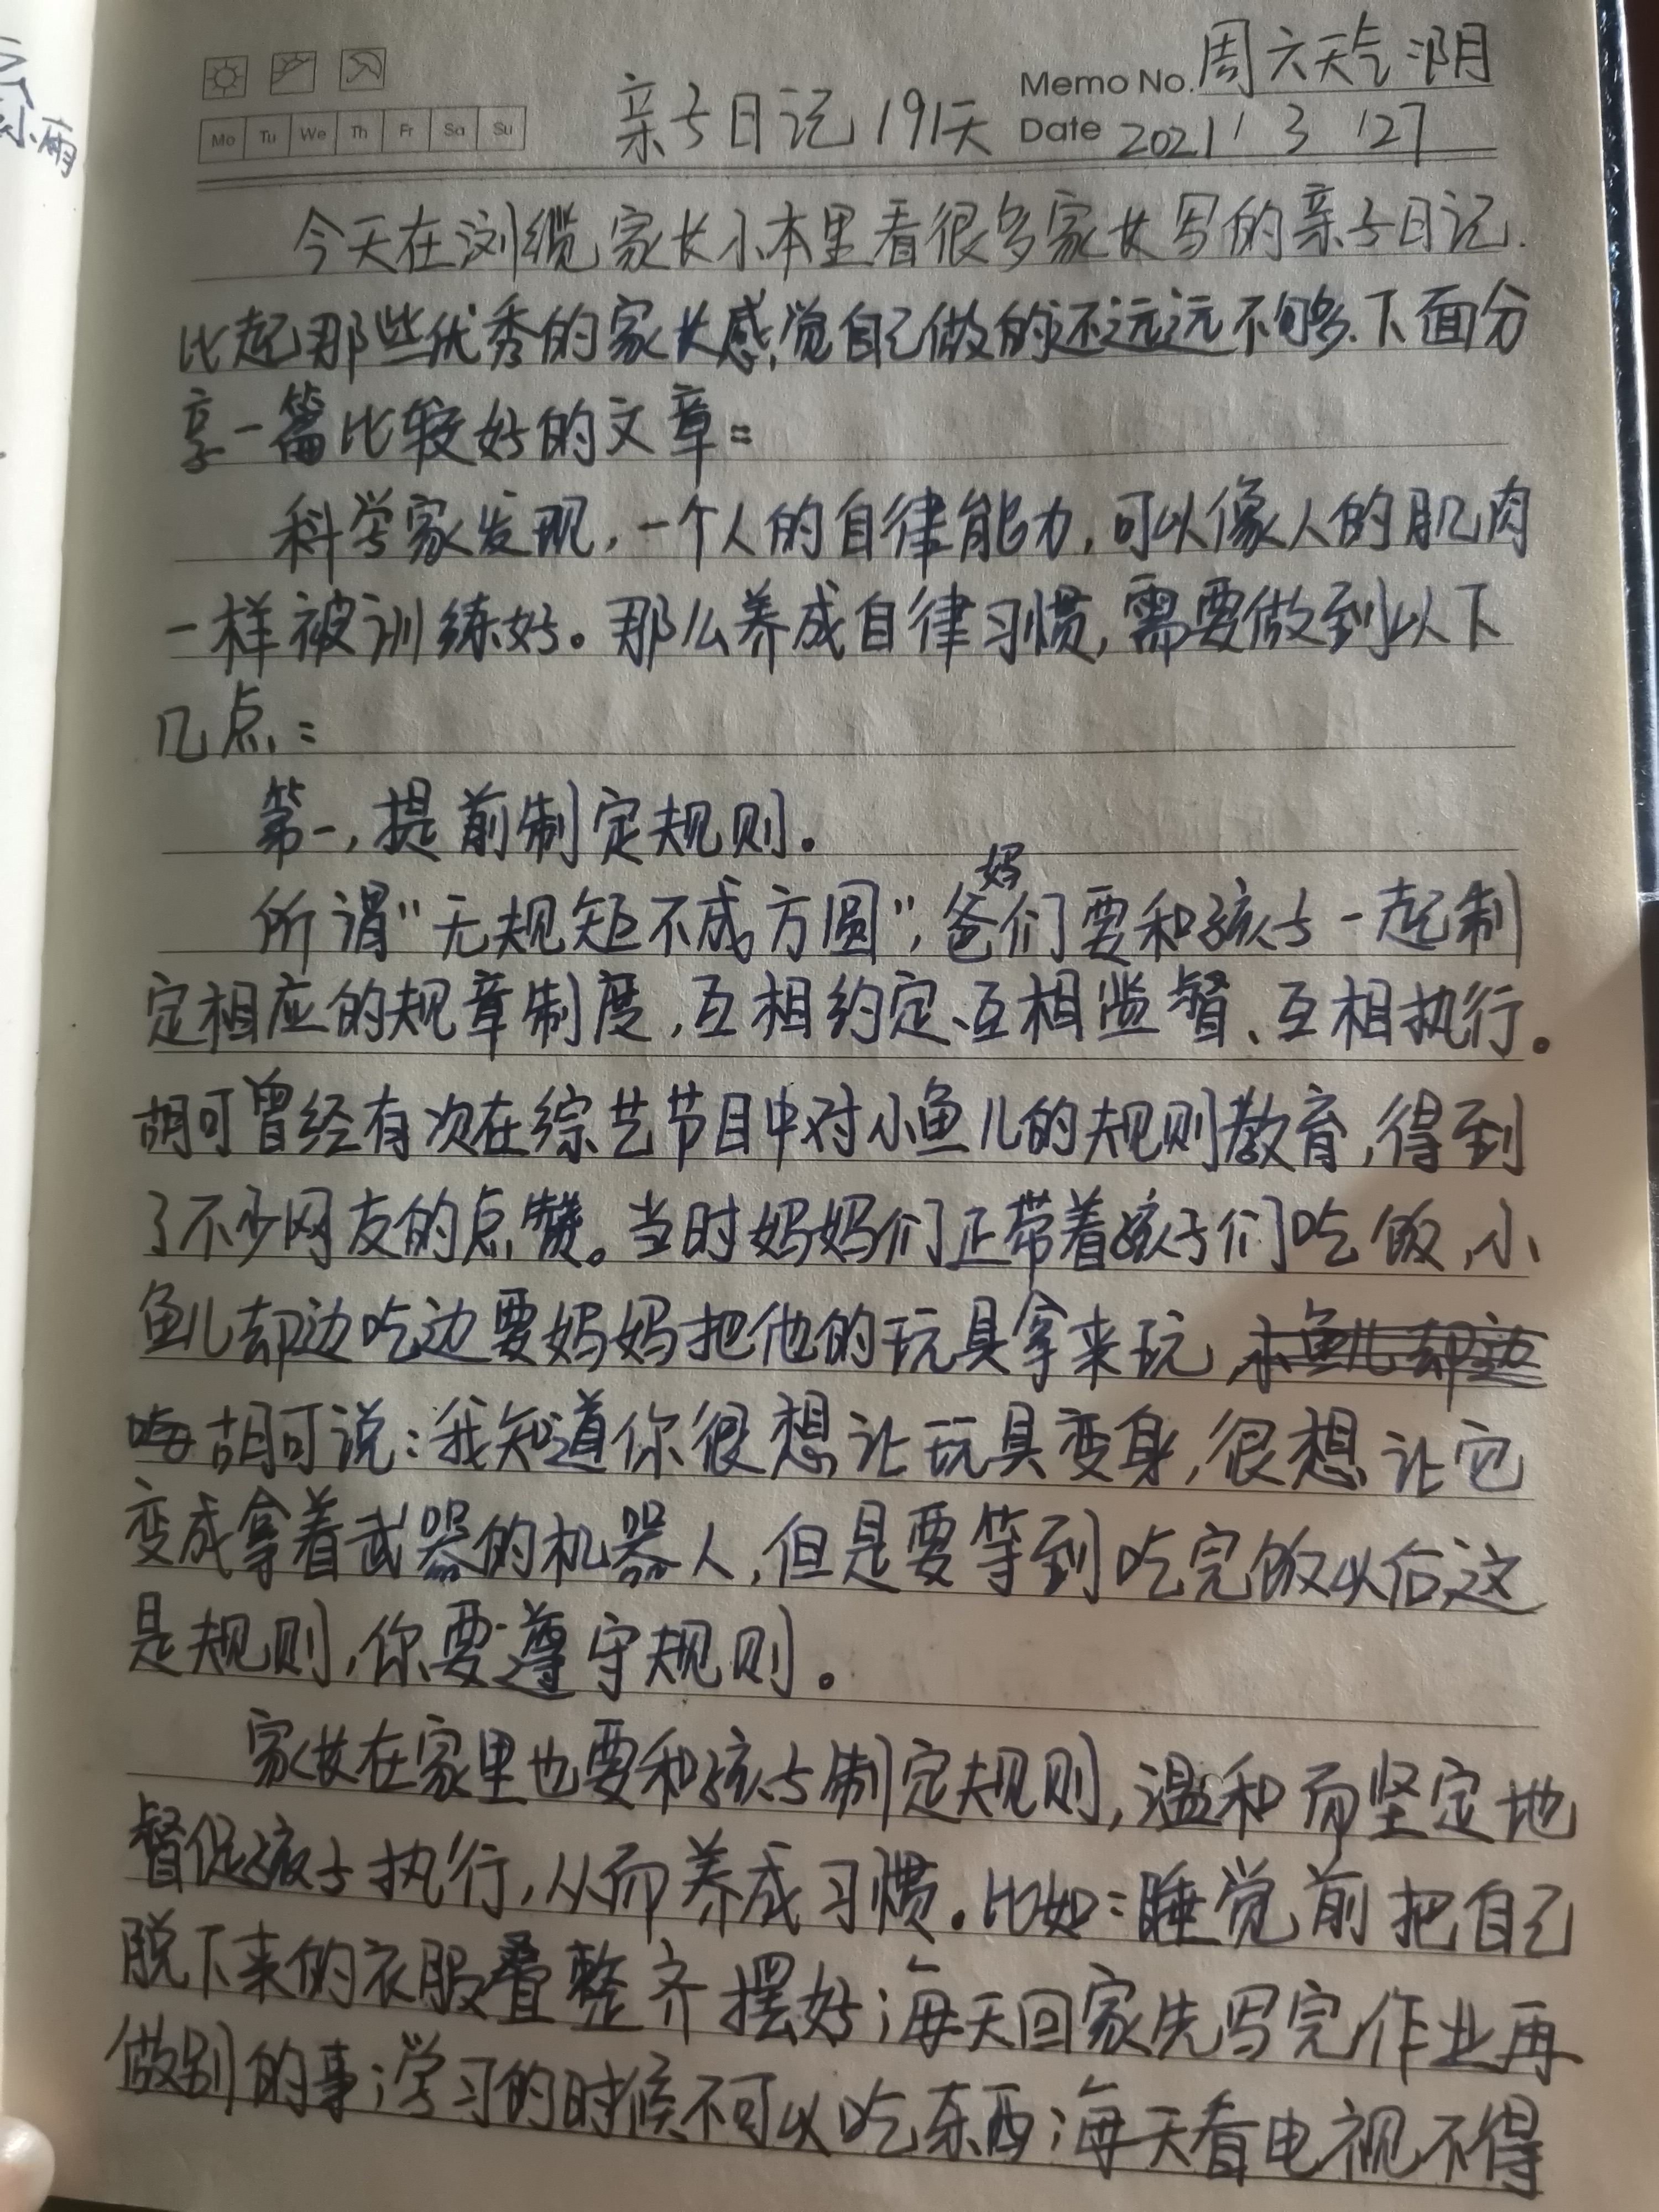 周六天气:阴
Memo No.
Mo Tu We Th Fr Sa Su
亲子日记191天
Date 2021 / 3 / 27
今天在浏缆家长小本里看很多家长写的亲子日记.
比起那些优秀的家长感觉自己做的还远远不够.下面分
享一篇比较好的文章:
科学家发现,一个人的自律能力,可以像人的肌肉
一样被训练好。那么养成自律习惯,需要做到以下
几点:
第一,提前制定规则。
所谓"无规矩不成方圆",爸妈们要和孩子一起制
定相应的规章制度,互相约定、互相监督、互相执行。
胡可曾经有次在综艺节目中对小鱼儿的规则教育,得到
了不少网友的点赞。当时妈妈们正带着孩子们吃饭,小
鱼儿却边吃边要妈妈把他的玩具拿来玩,小鱼儿却边
胡可说:我知道你很想让玩具变身,很想让它
变成拿着武器的机器人,但是要等到吃完饭以后,这
是规则,你要遵守规则。
家长在家里也要和孩子制定规则,温和而坚定地
督促孩子执行,从而养成习惯。比如:睡觉前把自己
脱下来的衣服叠整齐摆好;每天回家先写完作业再
做别的事;学习的时候不可以吃东西;每天看电视不得
小雨